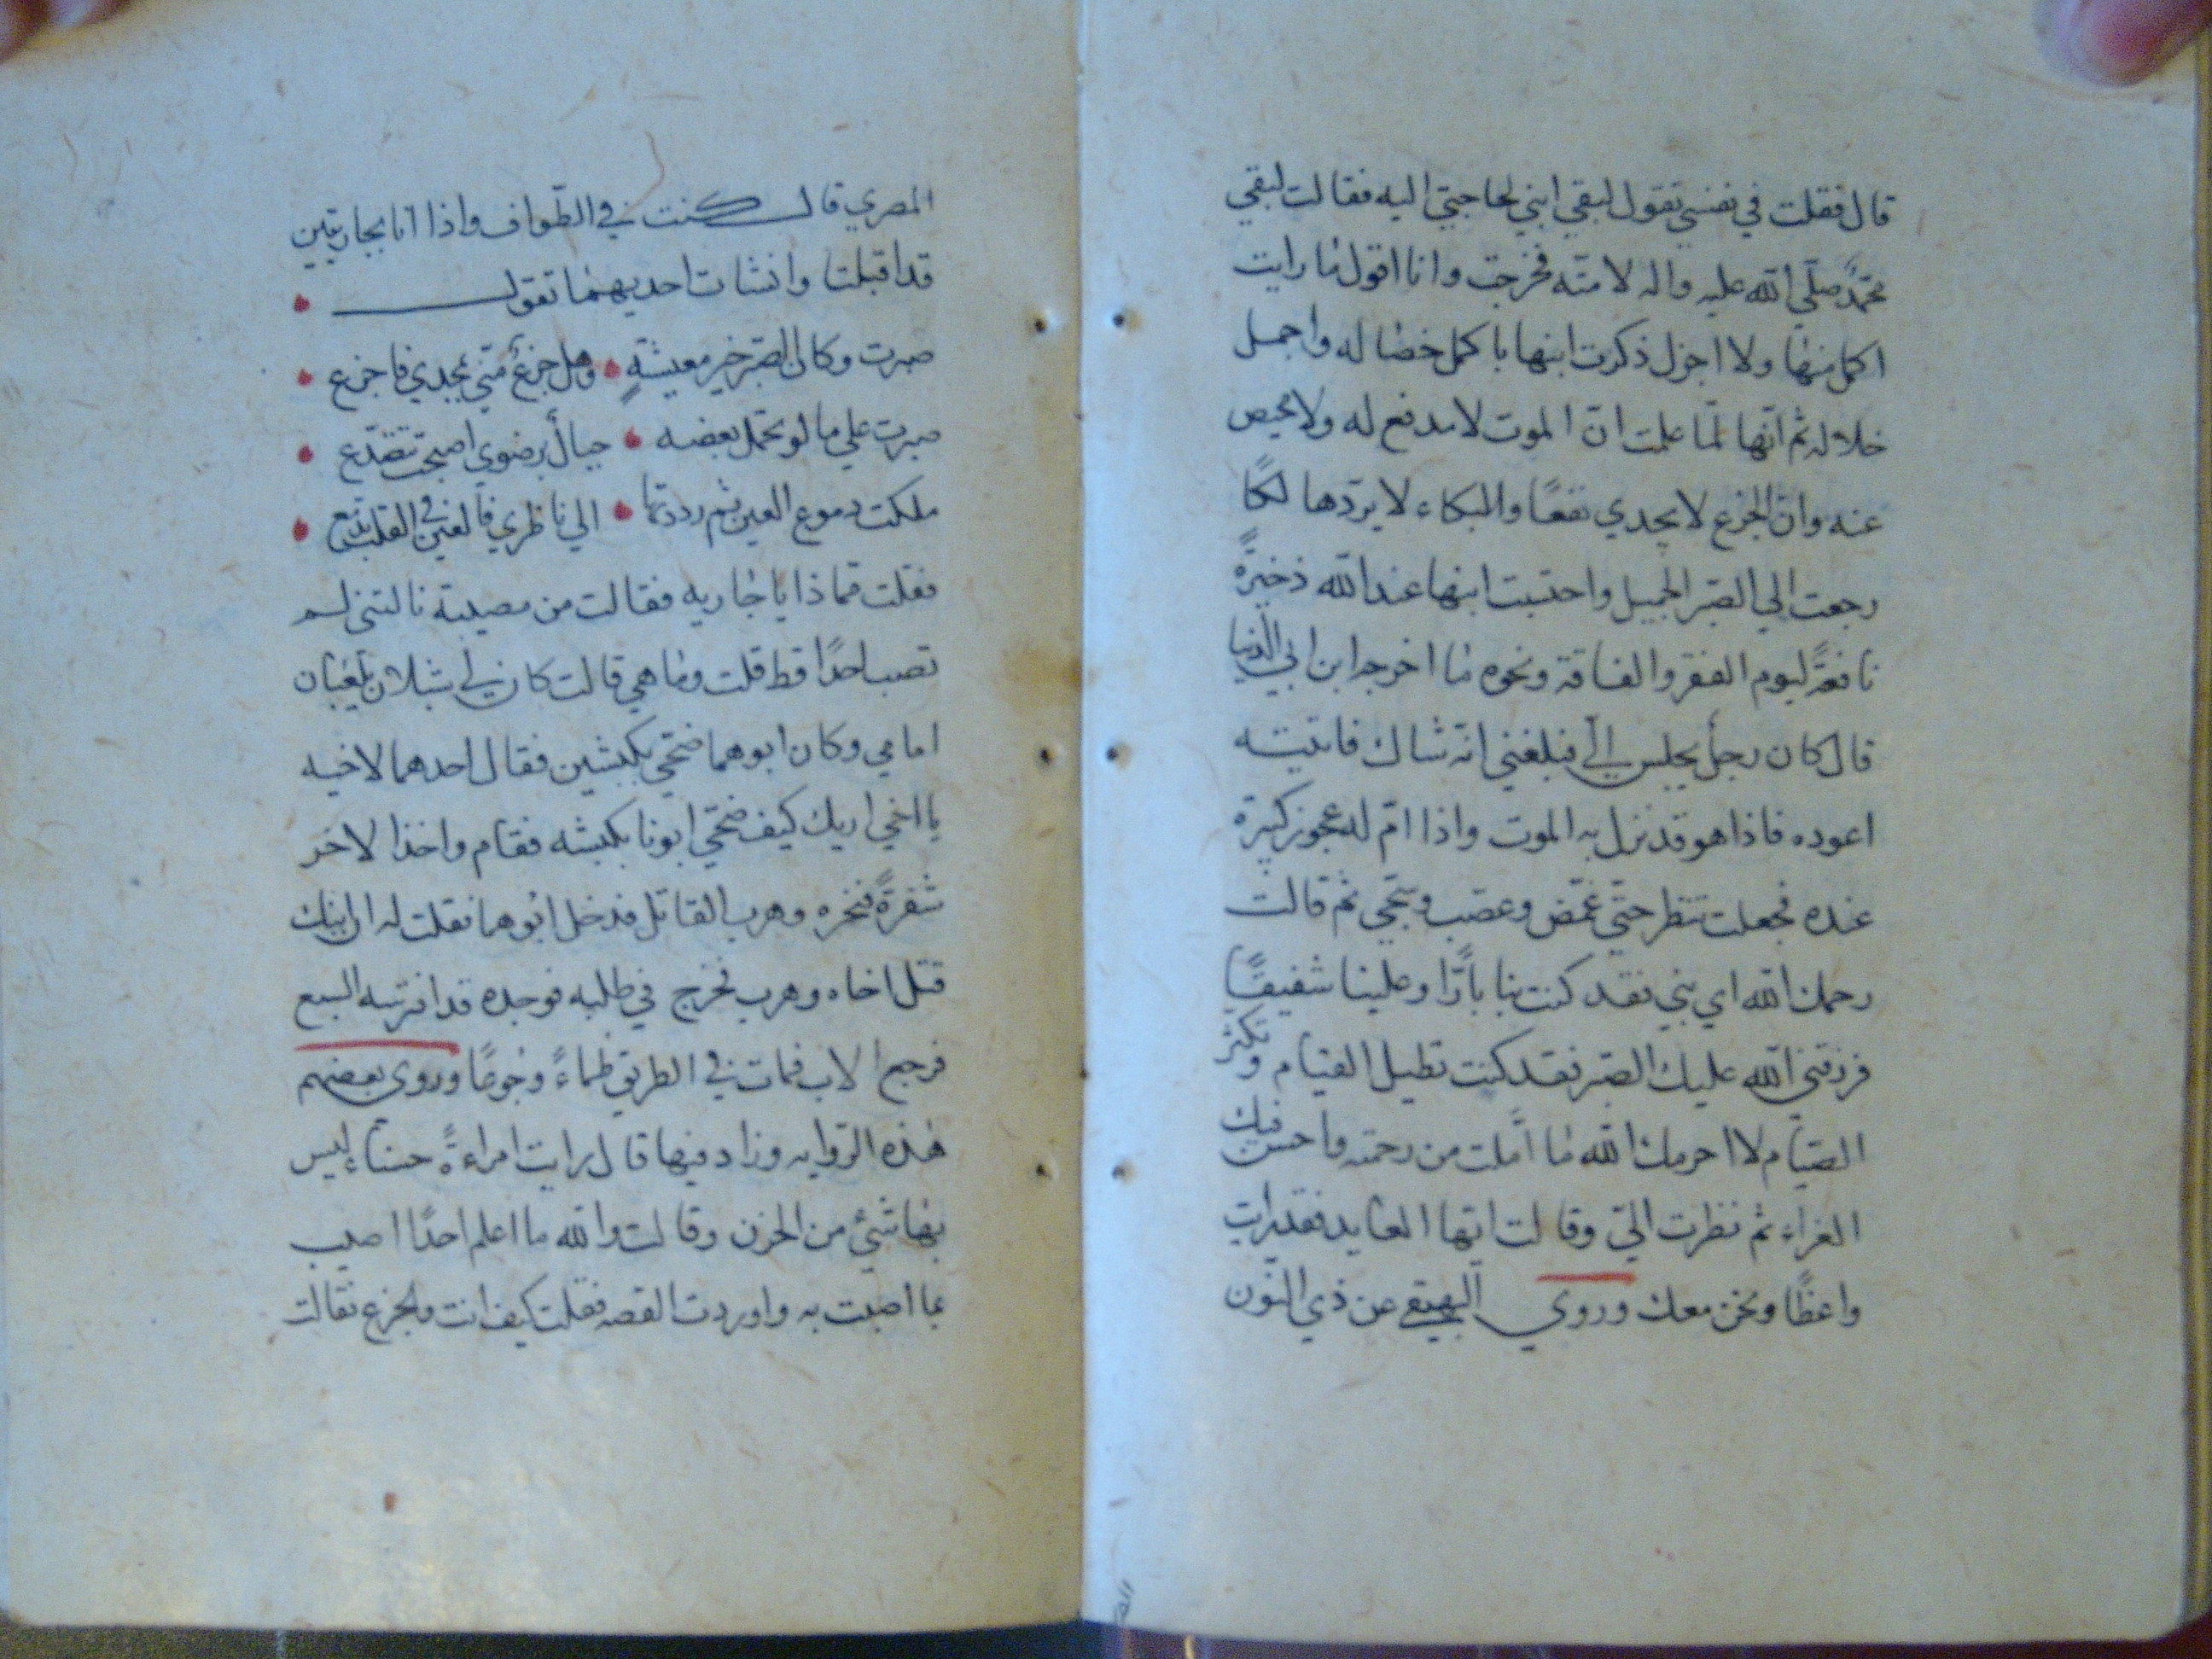 قال فقلت في نفسي تقول لبقي ابني لحاجتي اليه فقالت لبقي
محمّد صلّي اللّه عليه واله لامّته فخرجت وانا اقول ما رايت
اكمل منها ولا اجزل ذكرت ابنها باكمل خصاله واجمل
خلاله ثم انّها لمّا علمت انّ الموت لا مدفع له ولا محيص
عنه وانّ الجزع لا يجدي نفعًا والبكاء لا يردّ هالكًا
رجعت الي الصّبر الجميل واحتسبت ابنها عند اللّه ذخيرةً
نافعةً ليوم الفقر والفاقة ونحوه ما اخرجه ابن ابي الدّنيا
قال كان رجلٌ يجلس اليّ فبلغني انّه شاك فاتيته
اعوده فاذا هو قد نزل به الموت واذا امّ له عجوز كبيرة
عنده فجعلت تنظر حتّي غمّض وعصّب وسجّي ثم قالت
رحمك اللّه اي بنيّ فقد كنت بنا بارًّا وعلينا شفيقًا
فرزقني اللّه عليك الصّبر فقد كنت تطيل القيام وتكثر
الصّيام لا احرمك اللّه ما امّلت من رحمته واحسن فيك
العزاء ثم نظرت اليّ وقالت ايّها العايد قد رايت
واعظًا ونحن معك وروي البيهقي عن ذي النّون
المصري قال كنت في الطّواف واذا انا بجاريتين
قد اقبلتا وانشات احديهما تقول
صبرت وكان الصّبر خير معيشةٍ وهل جزعٌ منّي يجدي فاجزع
صبرت علي ما لو تحمّل بعضه جبالٌ برضوي اصبحت تتصدّع
ملكت دموع العين ثم رددتها الي ناظري فالعين في القلب تدمع
فقلت مماذا يا جاريه فقالت من مصيبة نالتني لم
تصب احدًا قط قلت وما هي قالت كان لي شبلان يلعبان
امامي وكان ابوهما ضحّي بكبشين فقال احدهما لاخيه
يا اخي اريك كيف ضحّي ابونا بكبشه فقام واخذ الاخر
شفرةً فنحره وهرب القاتل فدخل ابوهما فقلت له ان ابنك
قتل اخاه وهرب فخرج في طلبه فوجده قد افترسه السبع
فرجع الاب فمات في الطريق ظماءً وجوعًا وروي بعضهم
هذه الرّوايه وزاد فيها قال رايت امراءةً حسناء ليس
بها شيٌ من الحزن وقالت واللّه ما اعلم احدًا اصيب
بما اصبت به واوردت القصه فقلت كيف انت والجزع فقالت